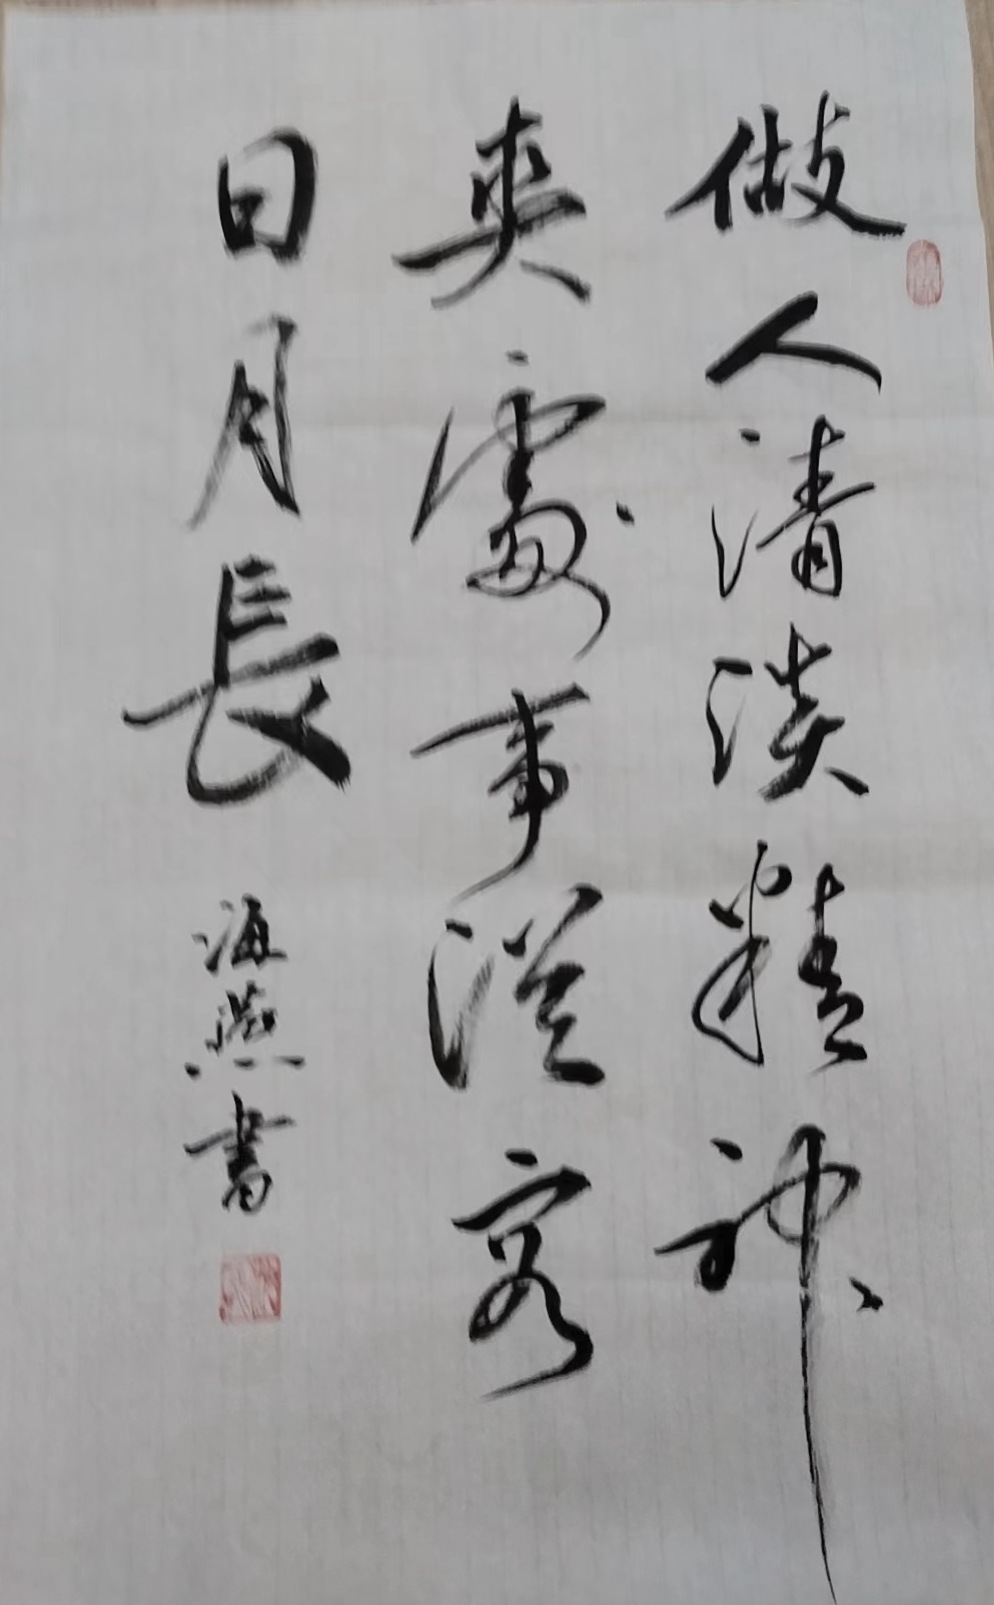 做人清淡精神
爽處事從容
日月長
海燕書